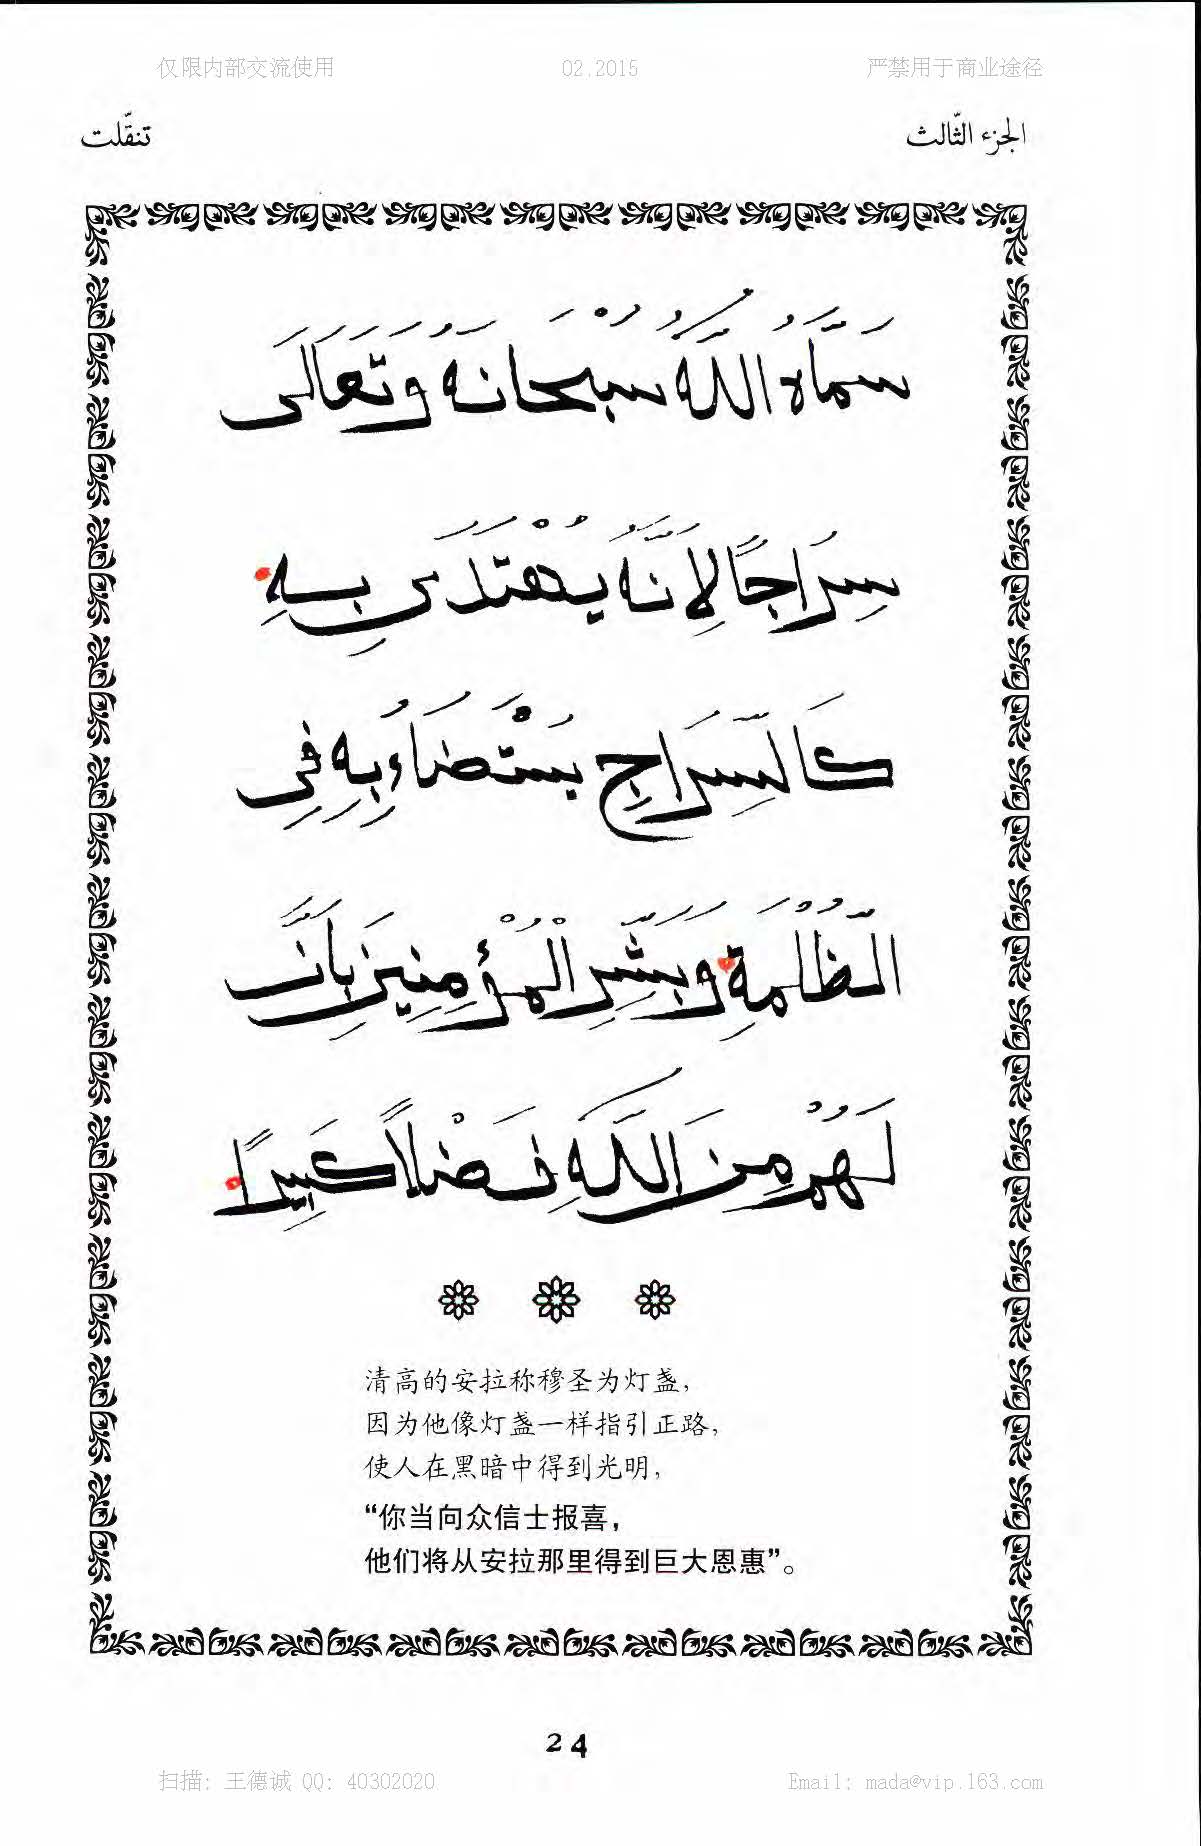 仅限内部交流使用 02.2015 严禁用于商业途径
الجزء الثّالث تنقّلت
سَمَّاهُ اللَّهُ سُبْحَانَهُ وَتَعَالَى
سِرَاجًا لِاَنَّهُ يُهْتَدَى بِهِ
كَالسِّرَاجِ يُسْتَضَاءُ بِهِ فِى
الظُّلْمَةِ وَبَشِّرِ الْمُؤْمِنِينَ بِاَنَّ
لَهُمْ مِنَ اللَّهِ فَضْلًا كَبِيرًا
清高的安拉称穆圣为灯盏，
因为他像灯盏一样指引正路，
使人在黑暗中得到光明，
“你当向众信士报喜，
他们将从安拉那里得到巨大恩惠”。
24
扫描: 王德诚 QQ: 40302020 Email: mada@vip.163.com